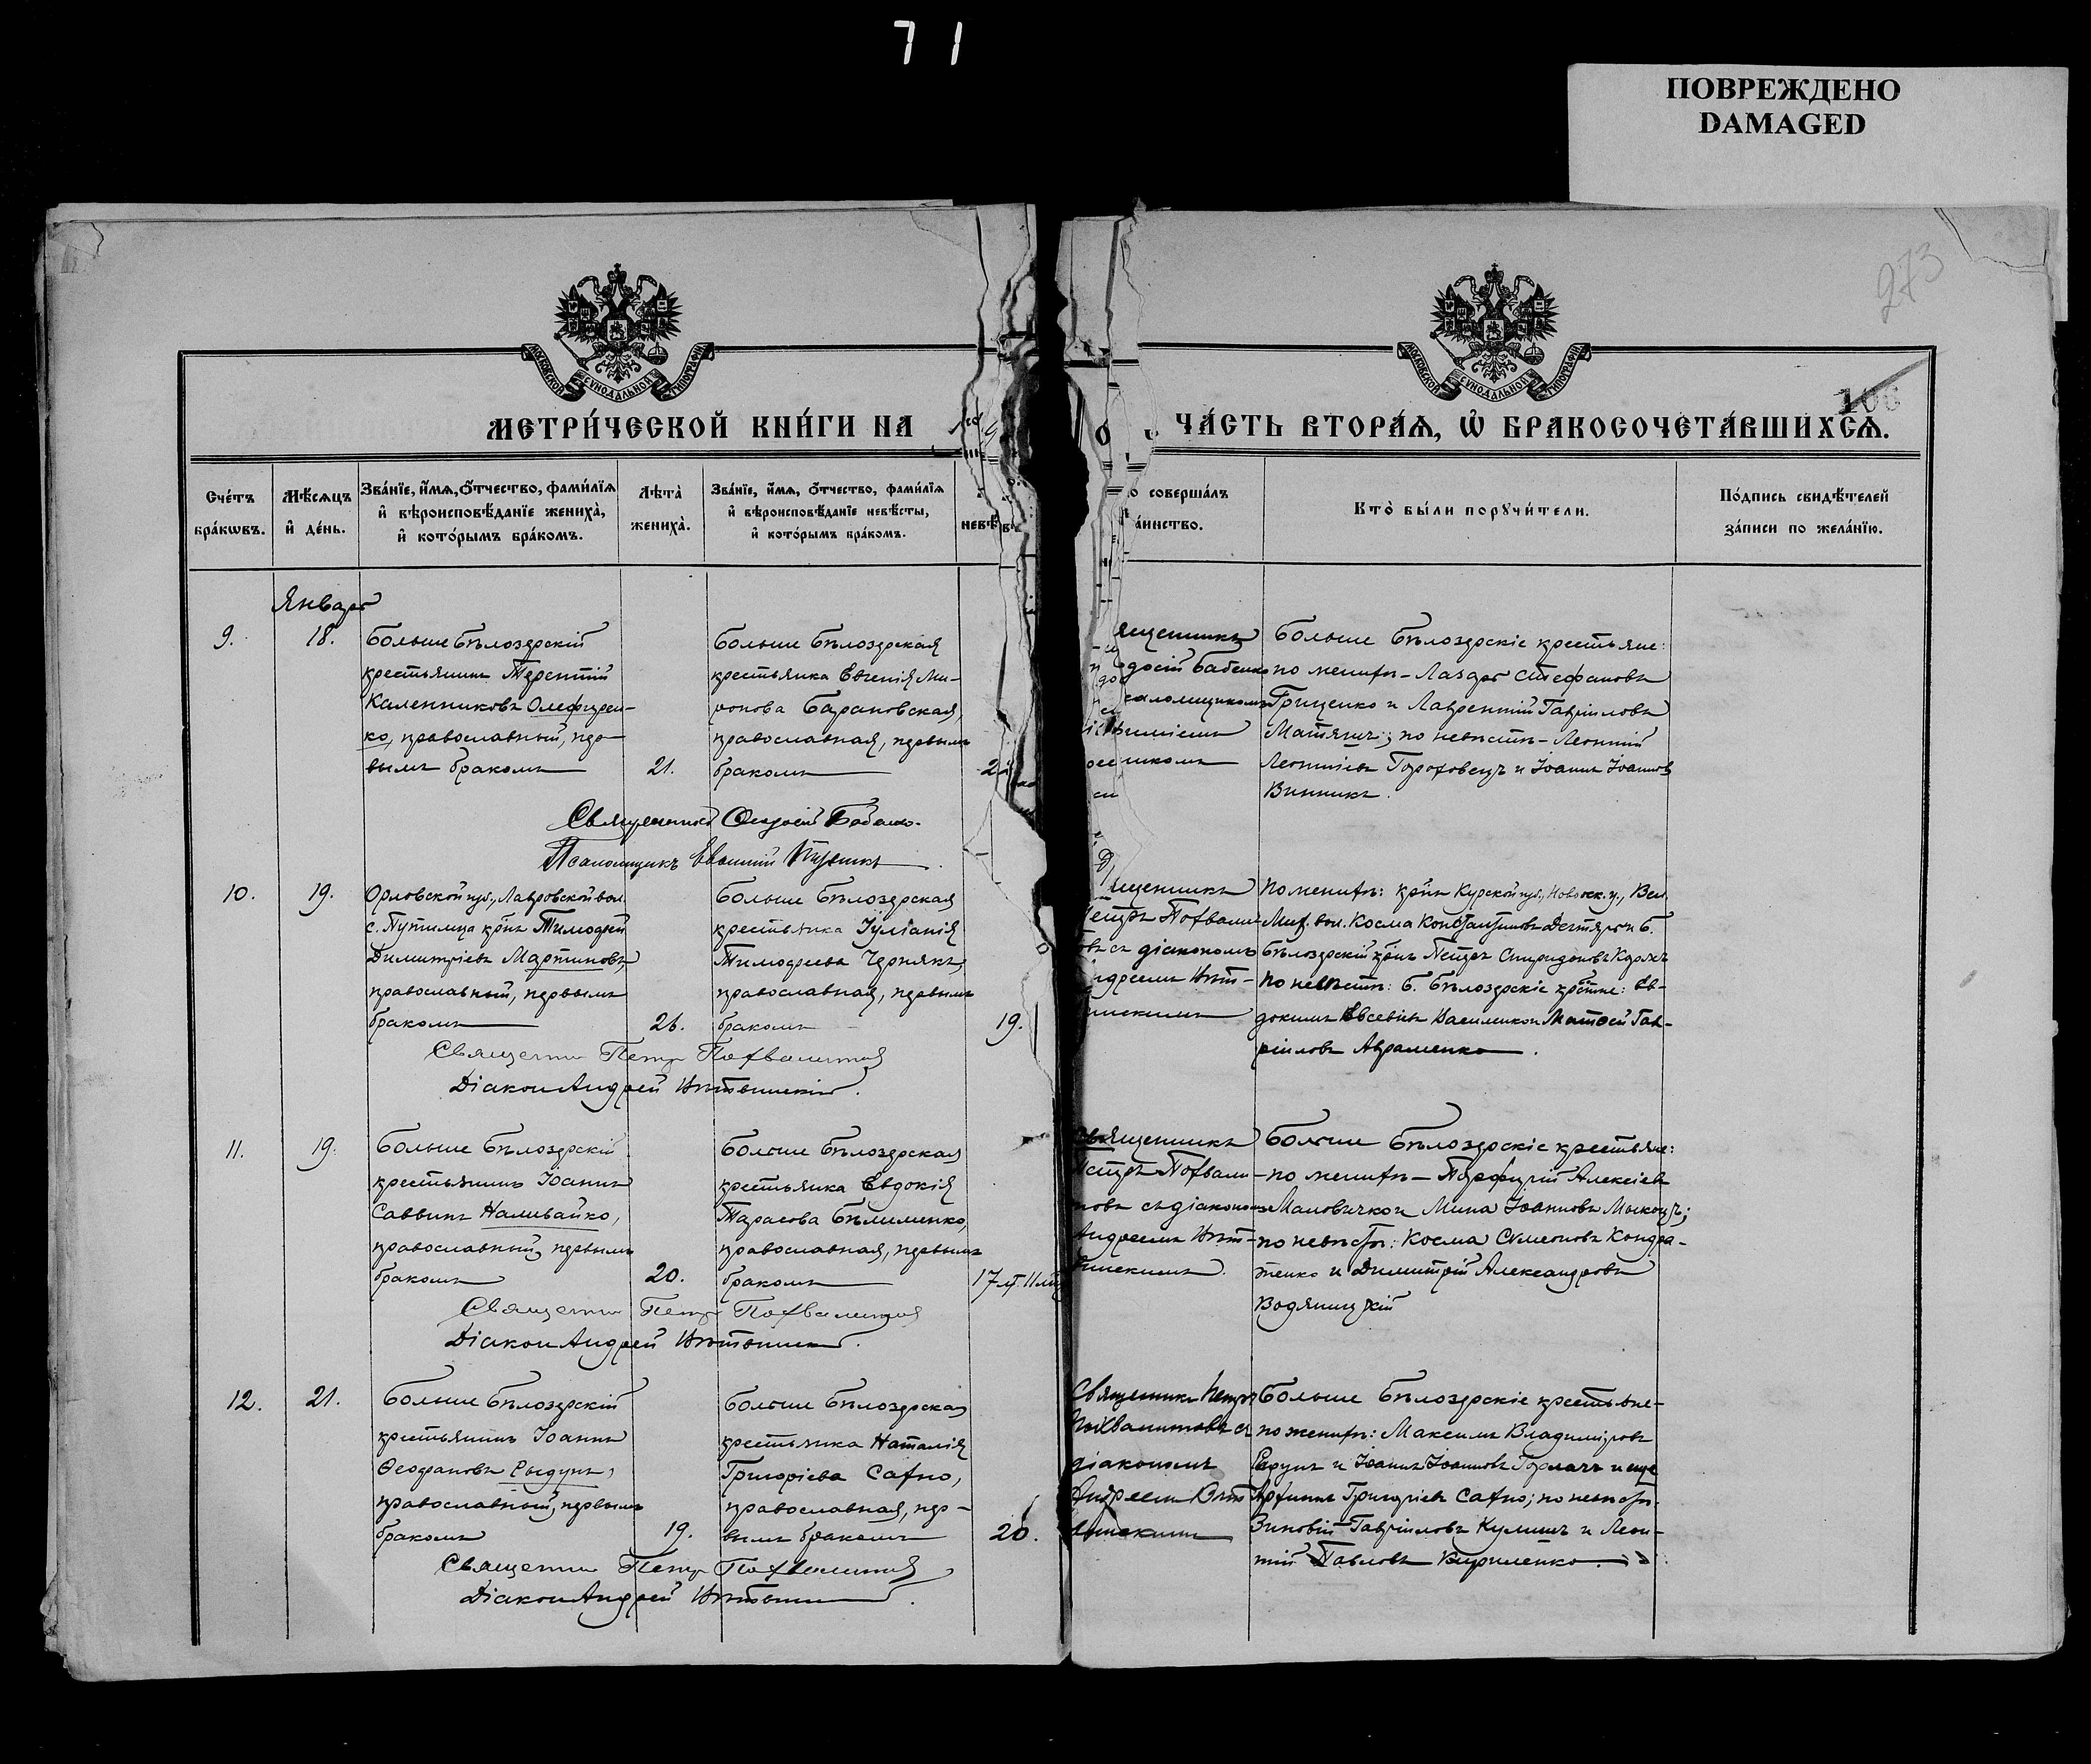 71
ПОВРЕЖДЕНО
DAMAGED
273
МОСКОВСКОЙ СѴНОДАЛЬНОЙ ТИПОГРАФІИ
МОСКОВСКОЙ СѴНОДАЛЬНОЙ ТИПОГРАФІИ
106
МЕТРИ́ЧЕСКОЙ КНИ́ГИ НА
ЧА́СТЬ ВТОРА́Я, Ѽ БРАКОСОЧЕТА́ВШИХСѦ.
Сче́тъ бра́кѡвъ.
Мѣ́сяцъ и҆ де́нь.
Зва́нїе, и҆́мя, ѻ҆́тчество, фами́лїя
и҆ вѣроисповѣ́данїе жениха̀,
и҆ кото́рымъ бра́комъ.
Лѣта̀ жениха̀.
Зва́нїе, и҆́мя, ѻ҆́тчество, фами́лїя
и҆ вѣроисповѣ́данїе невѣ́сты,
и҆ кото́рымъ бра́комъ.
невѣ
соверша́лъ
Кто̀ бы́ли порꙋчи́тели.
По́дпись свидѣ́телей
за́писи по жела́нїю.
Январь
9.
18.
Больше Бѣлозерскій
крестьянинъ Терентій
Каленниковъ Олефирен-
ко, православный, пер-
вымъ бракомъ
21.
Больше Бѣлозерская
крестьянка Евгенія Ми-
ронова Барановская,
православная, первымъ
бракомъ
ященникъ
досій Бабенко
саломщикомъ
Больше Бѣлозерскіе крестьяне:
по женихѣ - Лазарь Стефановъ
Гриценко и Лаврентій Гавріиловъ
Матяшъ; по невѣстѣ - Леонтій
Леонтіевъ Гороховецъ и Іоаннъ Іоанновъ
Винникъ.
Священникъ Ѳеодосій Бабенко.
Псаломщикъ Евѳимій
10.
19.
Орловской губ., Лавровской вол.
с. Путимца кр-нъ Тимофей
Димитріевъ Мартиновъ,
православный, первымъ
бракомъ
26.
Больше Бѣлозерская
крестьянка Іуліанія
Тимофеева Чернякъ,
православная, первымъ
бракомъ
19.
ященникъ
Петръ Похвали-
товъ съ діакономъ
Андреемъ Витв-
По женихѣ: кр-нъ Курской губ., Новооск. у., Вел.
Мих. вол. Косма Константиновъ Дегтярь и Б.
Бѣлозерскій кр-нъ Петръ Спиридоновъ Коржъ
По невѣстѣ: Б. Бѣлозерскіе кр-тяне: Ев-
докимъ Евсевіевъ Василенко и Матѳей Гав-
ріиловъ Авраменко.
Священник Петр Похвалитов
Діакон Андрей
11.
19.
Больше Бѣлозерскій
крестьянинъ Іоаннъ
Саввинъ Наливайко,
православный, первымъ
бракомъ
20.
Больше Бѣлозерская
крестьянка Евдокія
Тарасова Бѣлименко,
православная, первымъ
бракомъ
17 л. 11 м
Священникъ
Петръ Похвали-
товъ съ діакономъ
Андреемъ
Больше Бѣлозерскіе крестьяне:
по женихѣ - Порфирій Алексіевъ
Маловичко и Мина Іоанновъ
по невѣстѣ: Косма Симеоновъ Кондра-
тенко и Димитрій Александровъ
Водяницкій
Священник Петр Похвалитов
Діакон Андрей
12.
21.
Больше Бѣлозерскій
крестьянинъ Іоаннъ
Ѳеофановъ Рыдунъ,
православный, первымъ
бракомъ
19.
Больше Бѣлозерская
крестьянка Наталія
Григоріева Сахно,
православная, пер-
вымъ бракомъ
20.
Священникъ Петръ
Похвалитовъ съ
діакономъ
Андреемъ
Больше Бѣлозерскіе крестьяне-
по женихѣ: Максимъ Владиміровъ
и Іоаннъ Іоанновъ Горлачъ и еще
Григоріевъ Сахно; по невѣстѣ:
Зиновій Гавріиловъ Кулишъ и Леон-
тій Павловъ Кириленко.
Священник Петр Похвалитов
Діакон Андрей